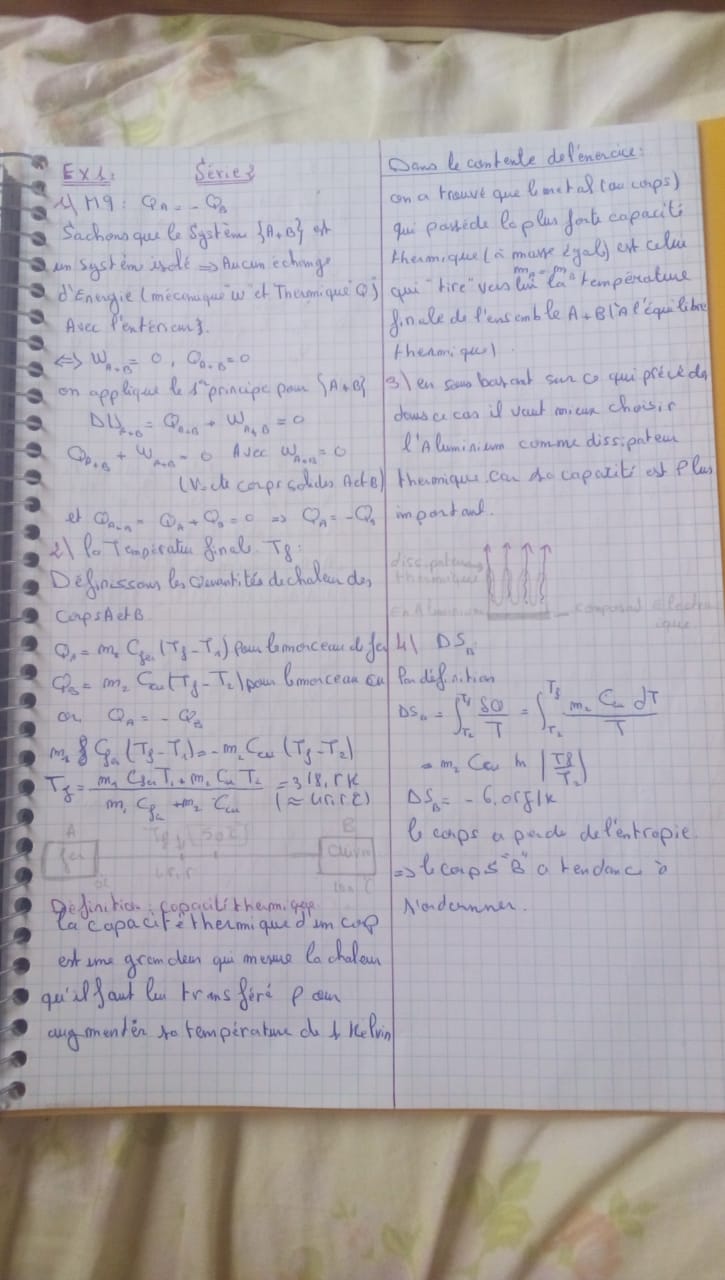 EX1: Série 3
1/ Mq: QA = - QB
Sachons que le Système {A+B} est
un système isolé => Aucun échange
d'Energie (mécanique "W" et Thermique "Q")
Avec l'extérieur}.
<=> W_A+B = 0, Q_A+B = 0
on applique le 1er principe pour {A+B}
DU_A+B = Q_A+B + W_A+B = 0
Q_A+B + W_A+B = 0 Avec W_A+B = 0
de corps solides A et B)
et Q_A+B = QA + QB = 0 => QA = - QB
2/ la Températur final Tf:
Définissons les Quantités de chaleur des
corps A et B
QA = m1 Cfer (Tf - T1) pour le morceau de fer
QB = m2 Ccu (Tf - T2) pour le morceau Cu
or QA = - QB
m1 Cfer (Tf - T1) = - m2 Ccu (Tf - T2)
Tf = (m1 Cfer T1 + m2 Ccu T2) / (m1 Cfer + m2 Ccu) = 318,5K
A B
fer
Définition: capacité thermique
la capacité thermique d'un corp
est une grandeur qui mesure la chaleur
qu'il faut lui transféré pour
augmenter sa température de 1 Kelvin
Dans le contexte de l'exercice:
on a trouvé que le metal (ou corps)
qui possède la plus forte capacité
thermique (à masse égal) est celui
qui "tire" vers lui la température
finale de l'ensemble A+B (A l'équilibre
thermique)
3) en sous basant sur ce qui précède
dans ce cas il vaut mieux choisir
l'Aluminium comme dissipateur
thermique. Car sa capacité est Plus
important.
dissipateur
thermique
En Aluminium composant électron
ique
4) DS_B
Par définition
DS_B = ∫_T2^Tf δQ/T = ∫_T2^Tf m2 Ccu dT / T
= m2 Ccu ln |Tf/T2|
DS_B = - 6,05 J/K
le corps a perdu de l'entropie
=> le corps "B" a tendance à
s'ordonner.